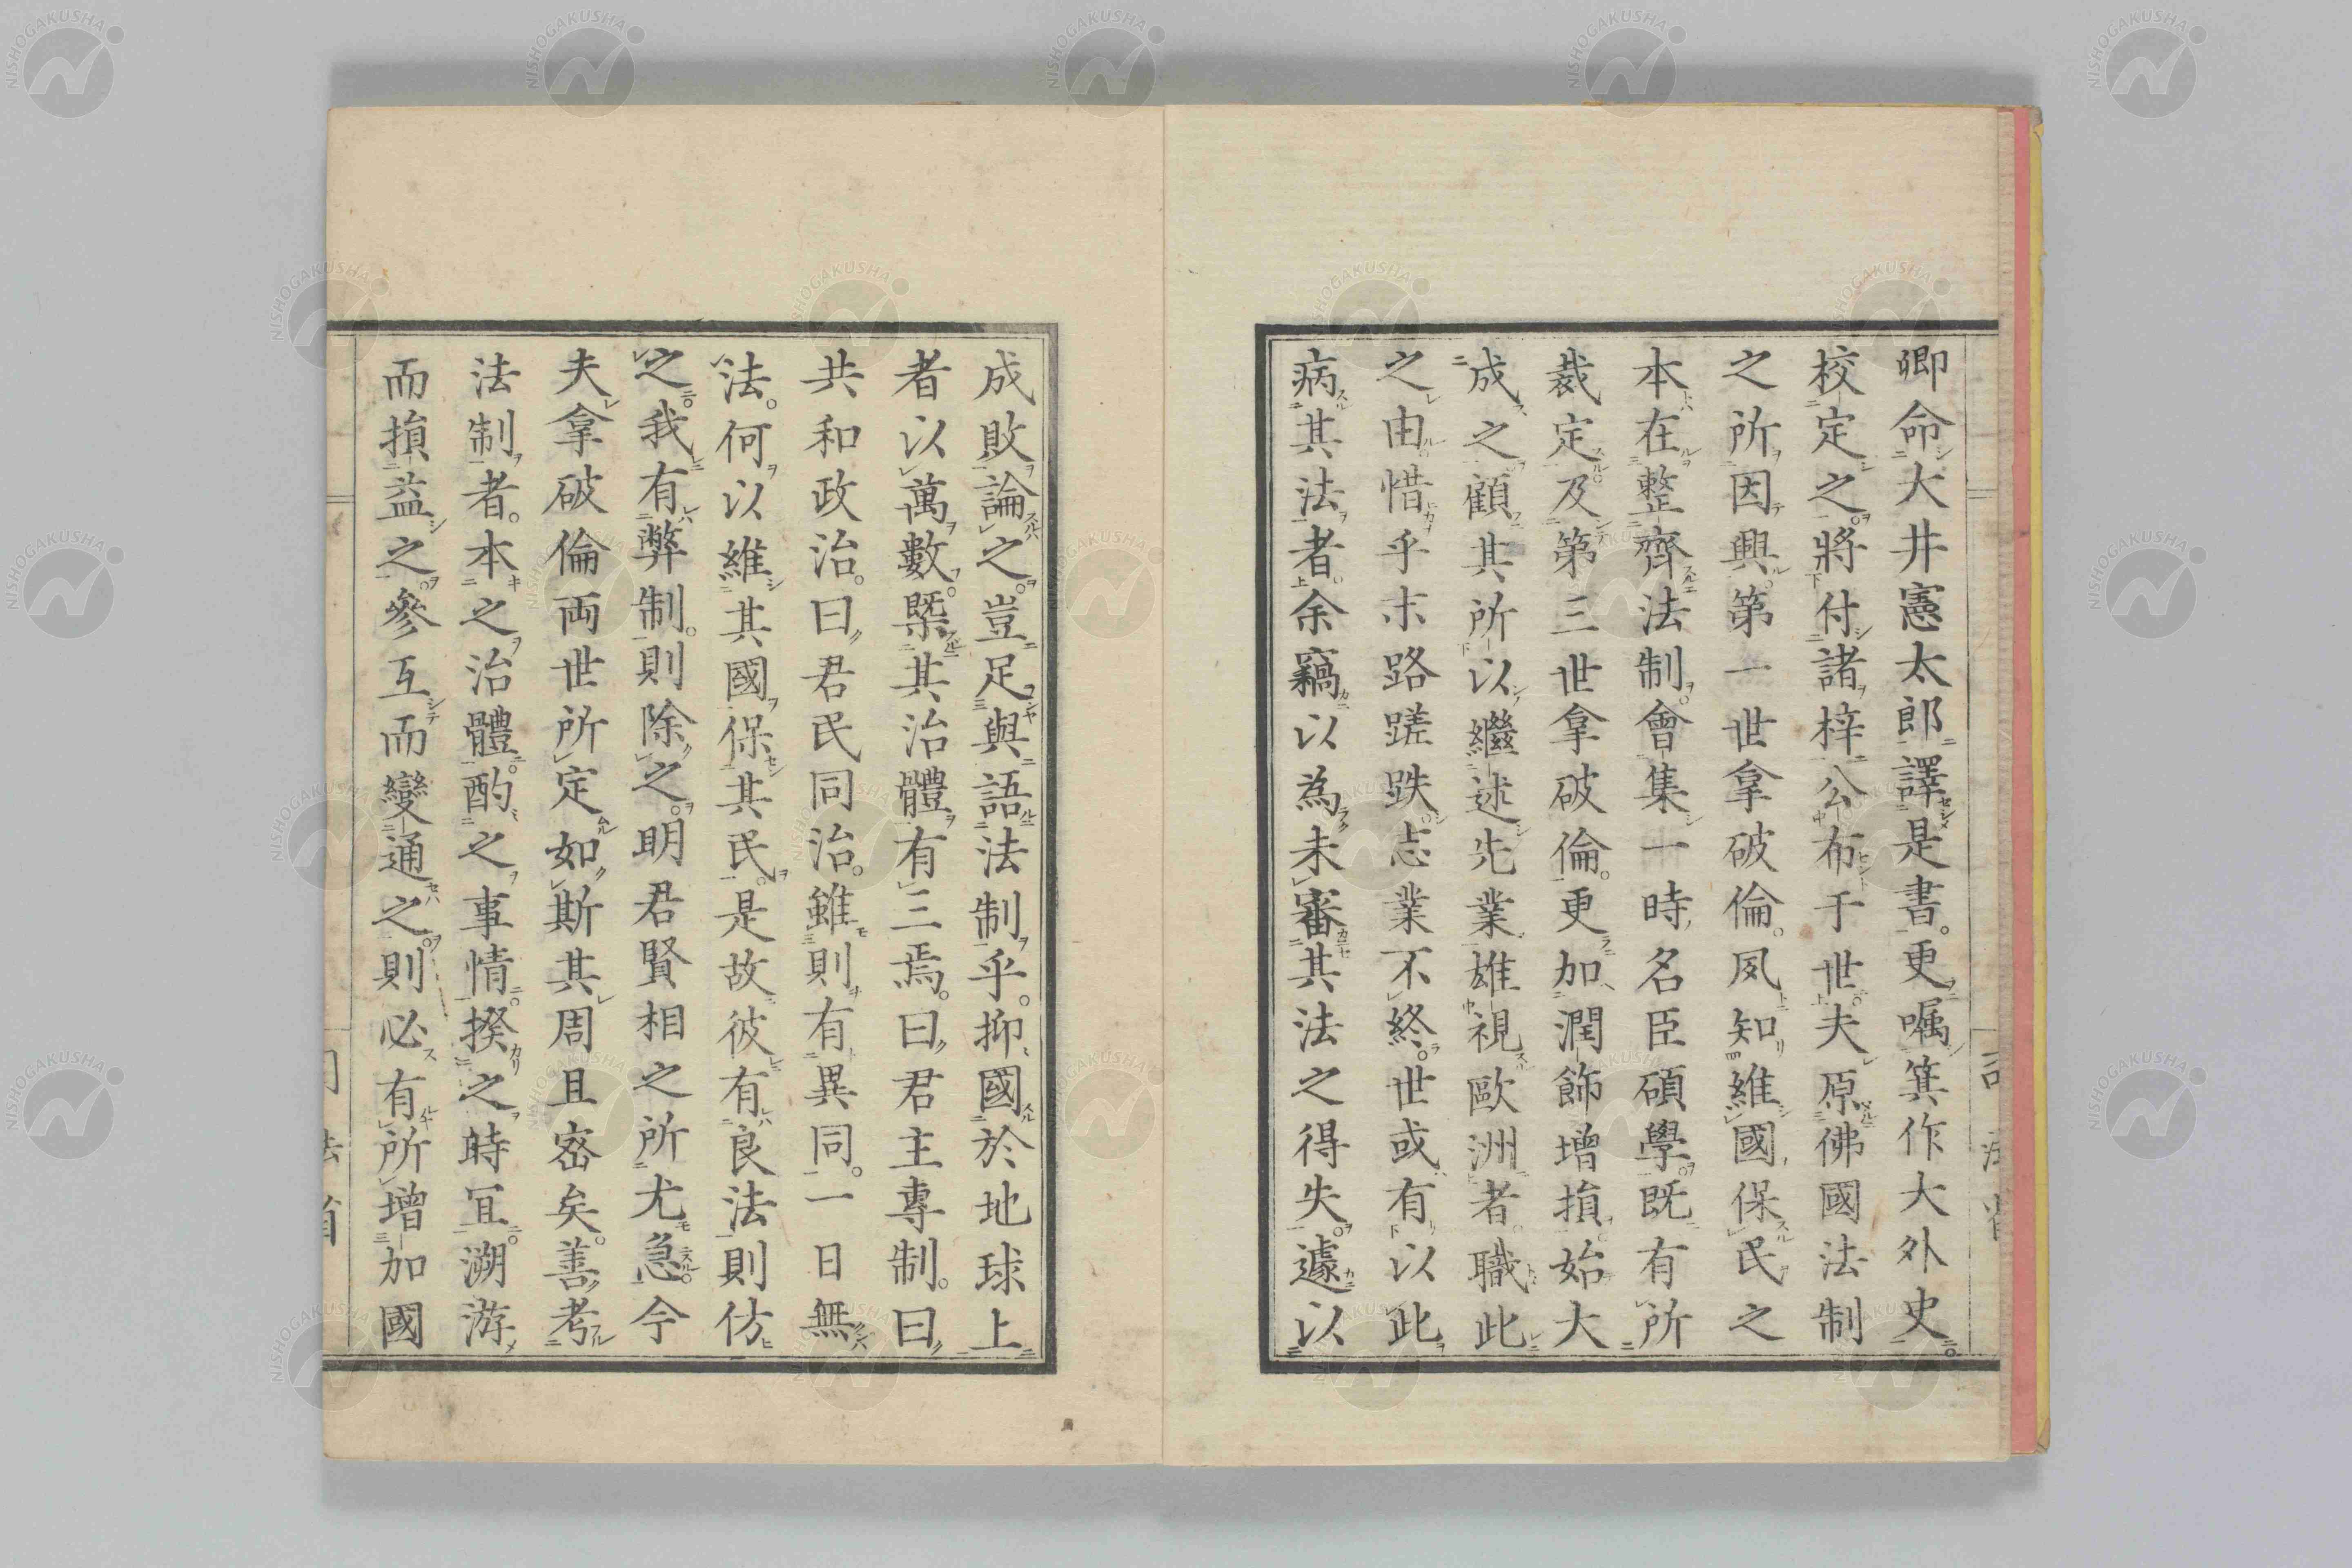 卿命大井憲太郎譯是書。更囑箕作大外史
校定之。將付諸梓公布于世。夫原佛國法制
之所因興。第一世拿破倫。夙知維國保民之
本在整齊法制。會集一時名臣碩學。既有所
裁定。及第三世拿破倫。更加潤飾增損。始大
成之。顧其所以繼述先業雄視歐洲者。職此
之由。惜乎末路蹉跌。志業不終。世或有以此
病其法者。余竊以為未審其法之得失。遽以
成敗論之。豈足與語法制乎。抑國於地球上
者以萬數。槩其治體有三焉。曰君主專制。曰
共和政治。曰君民同治。雖則有異同。一日無
法。何以維其國保其民。是故彼有良法則仿
之。我有弊制。則除之。明君賢相之所尤急。今
夫拿破倫両世所定如斯其周且宻矣。善考
法制者。本之治體。酌之事情。揆之時宜。溯游
而損益之。參互而變通之。則必有所增加國
NISHOGAKUSHA